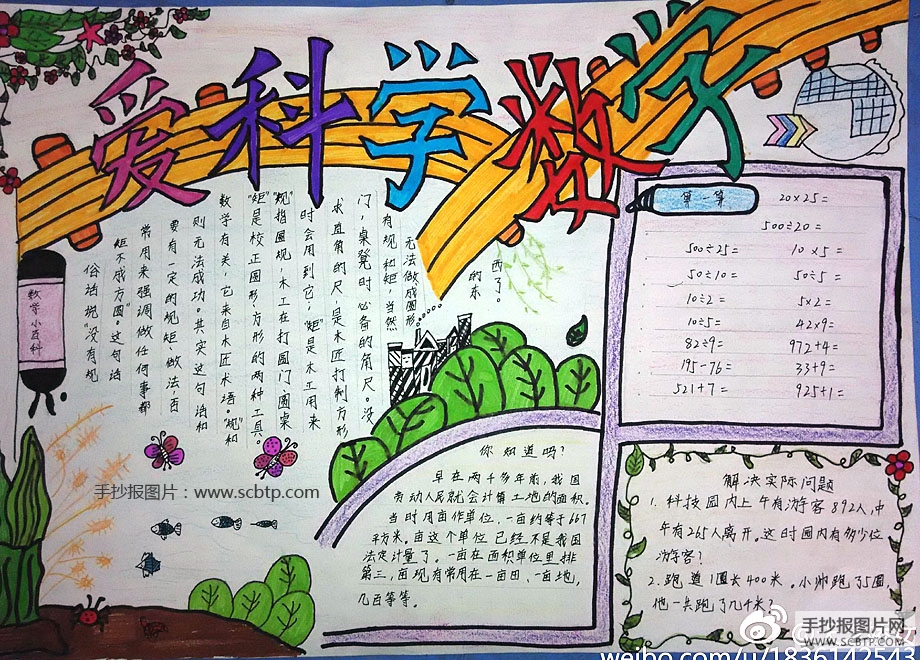 爱科学数学
数学小百科
俗话说"没有规
矩不成方圆"。这句话
常用来强调做任何事都
要有一定的规矩、做法,否
则无法成功。其实这句话和
数学有关,它来自木匠术语。"规"和
"矩"是校正圆形、方形的两种工具。
"规"指圆规,木工在打圆门圆桌
时会用到它;"矩"是木工用来
求直角的尺,是木匠打制方形
门,桌凳时必备的角尺。没
有规和矩,当然
无法做成圆形
的东
西了。
第一单
20×25=
500÷20=
500÷25= 10×5=
50÷10= 50÷5=
10÷2= 5×2=
10÷5= 42×9=
82÷9= 972+4=
195-76= 33+9=
521+7= 925+1=
你知道吗?
早在两千多年前,我国
劳动人民就会计算土地的面积。
当时用亩作单位,一亩约等于667
平方米,亩这个单位已经不是我国
法定计量了。一亩在面积单位里排
第三,亩现有常用在一亩田、一亩地,
几百等等。
解决实际问题
1.科技园内上午有游客892人,中
午有265人离开,这时园内有多少位
游客?
2.跑道1圈长400米。小帅跑了5圈,
他一共跑了几千米?
手抄报图片:www.scbtp.com
手抄报图片网
WWW.SCBTP.COM
weibo.com/u/1836142543